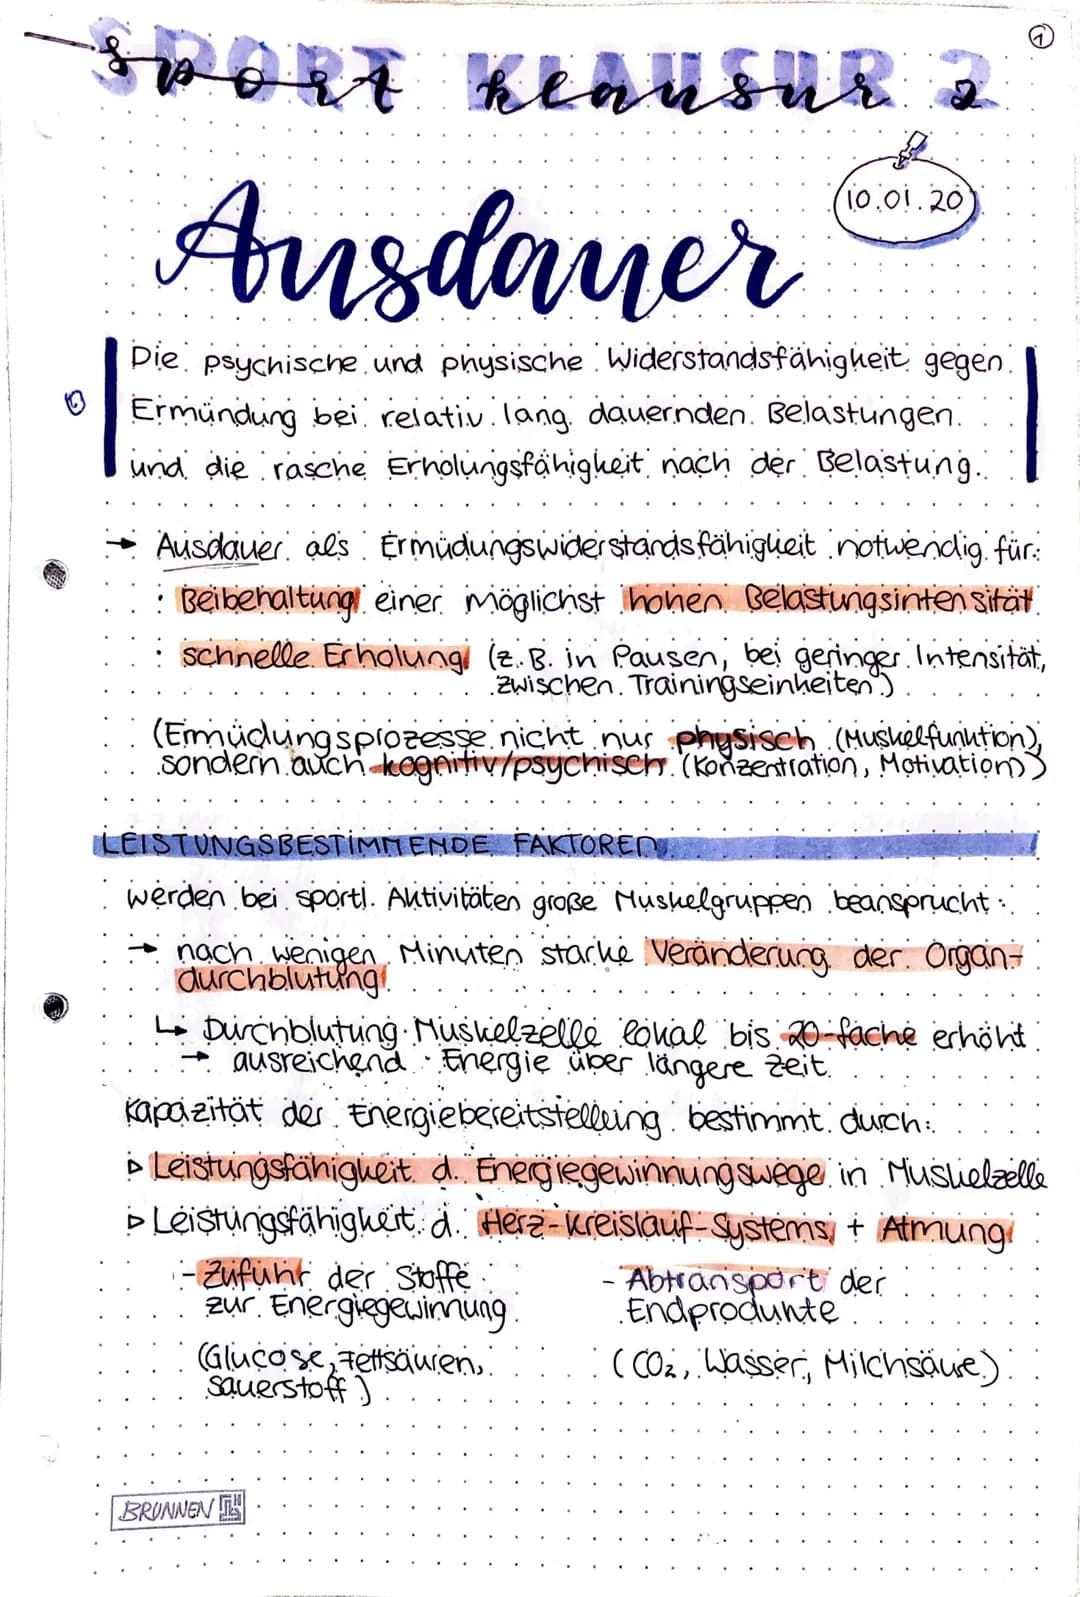 ①
SPORT KLAUSUR 2
sport klausur 2
10.01.20
Ausdauer
Die psychische und physische Widerstandsfähigkeit gegen
Ermüdung bei relativ lang dauernden Belastungen
und die rasche Erholungsfähigkeit nach der Belastung.
→ Ausdauer als Ermüdungswiderstandsfähigkeit notwendig für:
: Beibehaltung einer möglichst hohen Belastungsintensität
: schnelle Erholung (z.B. in Pausen, bei geringer Intensität,
zwischen Trainingseinheiten)
(Ermüdungsprozesse nicht nur physisch (Muskelfunktion),
sondern auch kognitiv/psychisch (Konzentration, Motivation))
LEISTUNGSBESTIMMENDE FAKTOREN
werden bei sportl. Aktivitäten große Muskelgruppen beansprucht:
→ nach wenigen Minuten starke Veränderung der Organ-
durchblutung
↳ Durchblutung Muskelzelle lokal bis 20-fache erhöht
→ ausreichend Energie über längere Zeit
Kapazität der Energiebereitstellung bestimmt durch:
▹ Leistungsfähigkeit d. Energiegewinnungswege in Muskelzelle
▹ Leistungsfähigkeit d. Herz-Kreislauf-Systems + Atmung
- Zufuhr der Stoffe
zur Energiegewinnung
(Glucose, Fettsäuren,
Sauerstoff)
- Abtransport der
Endprodukte
(CO₂, Wasser, Milchsäure)
BRUNNEN